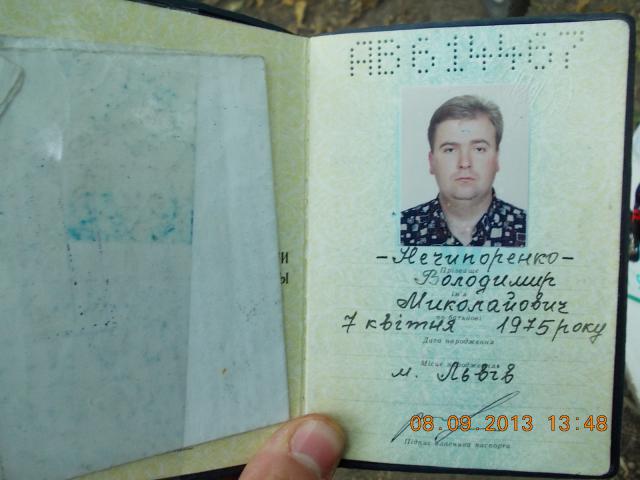 АВ 614467
-Нечипоренко-
Прізвище
Володимир
ім'я
Миколайович
по батькові
7 квітня 1975 року
Дата народження
Місце народження
м. Львів
08.09.2013 13:48
Підпис власника паспорта